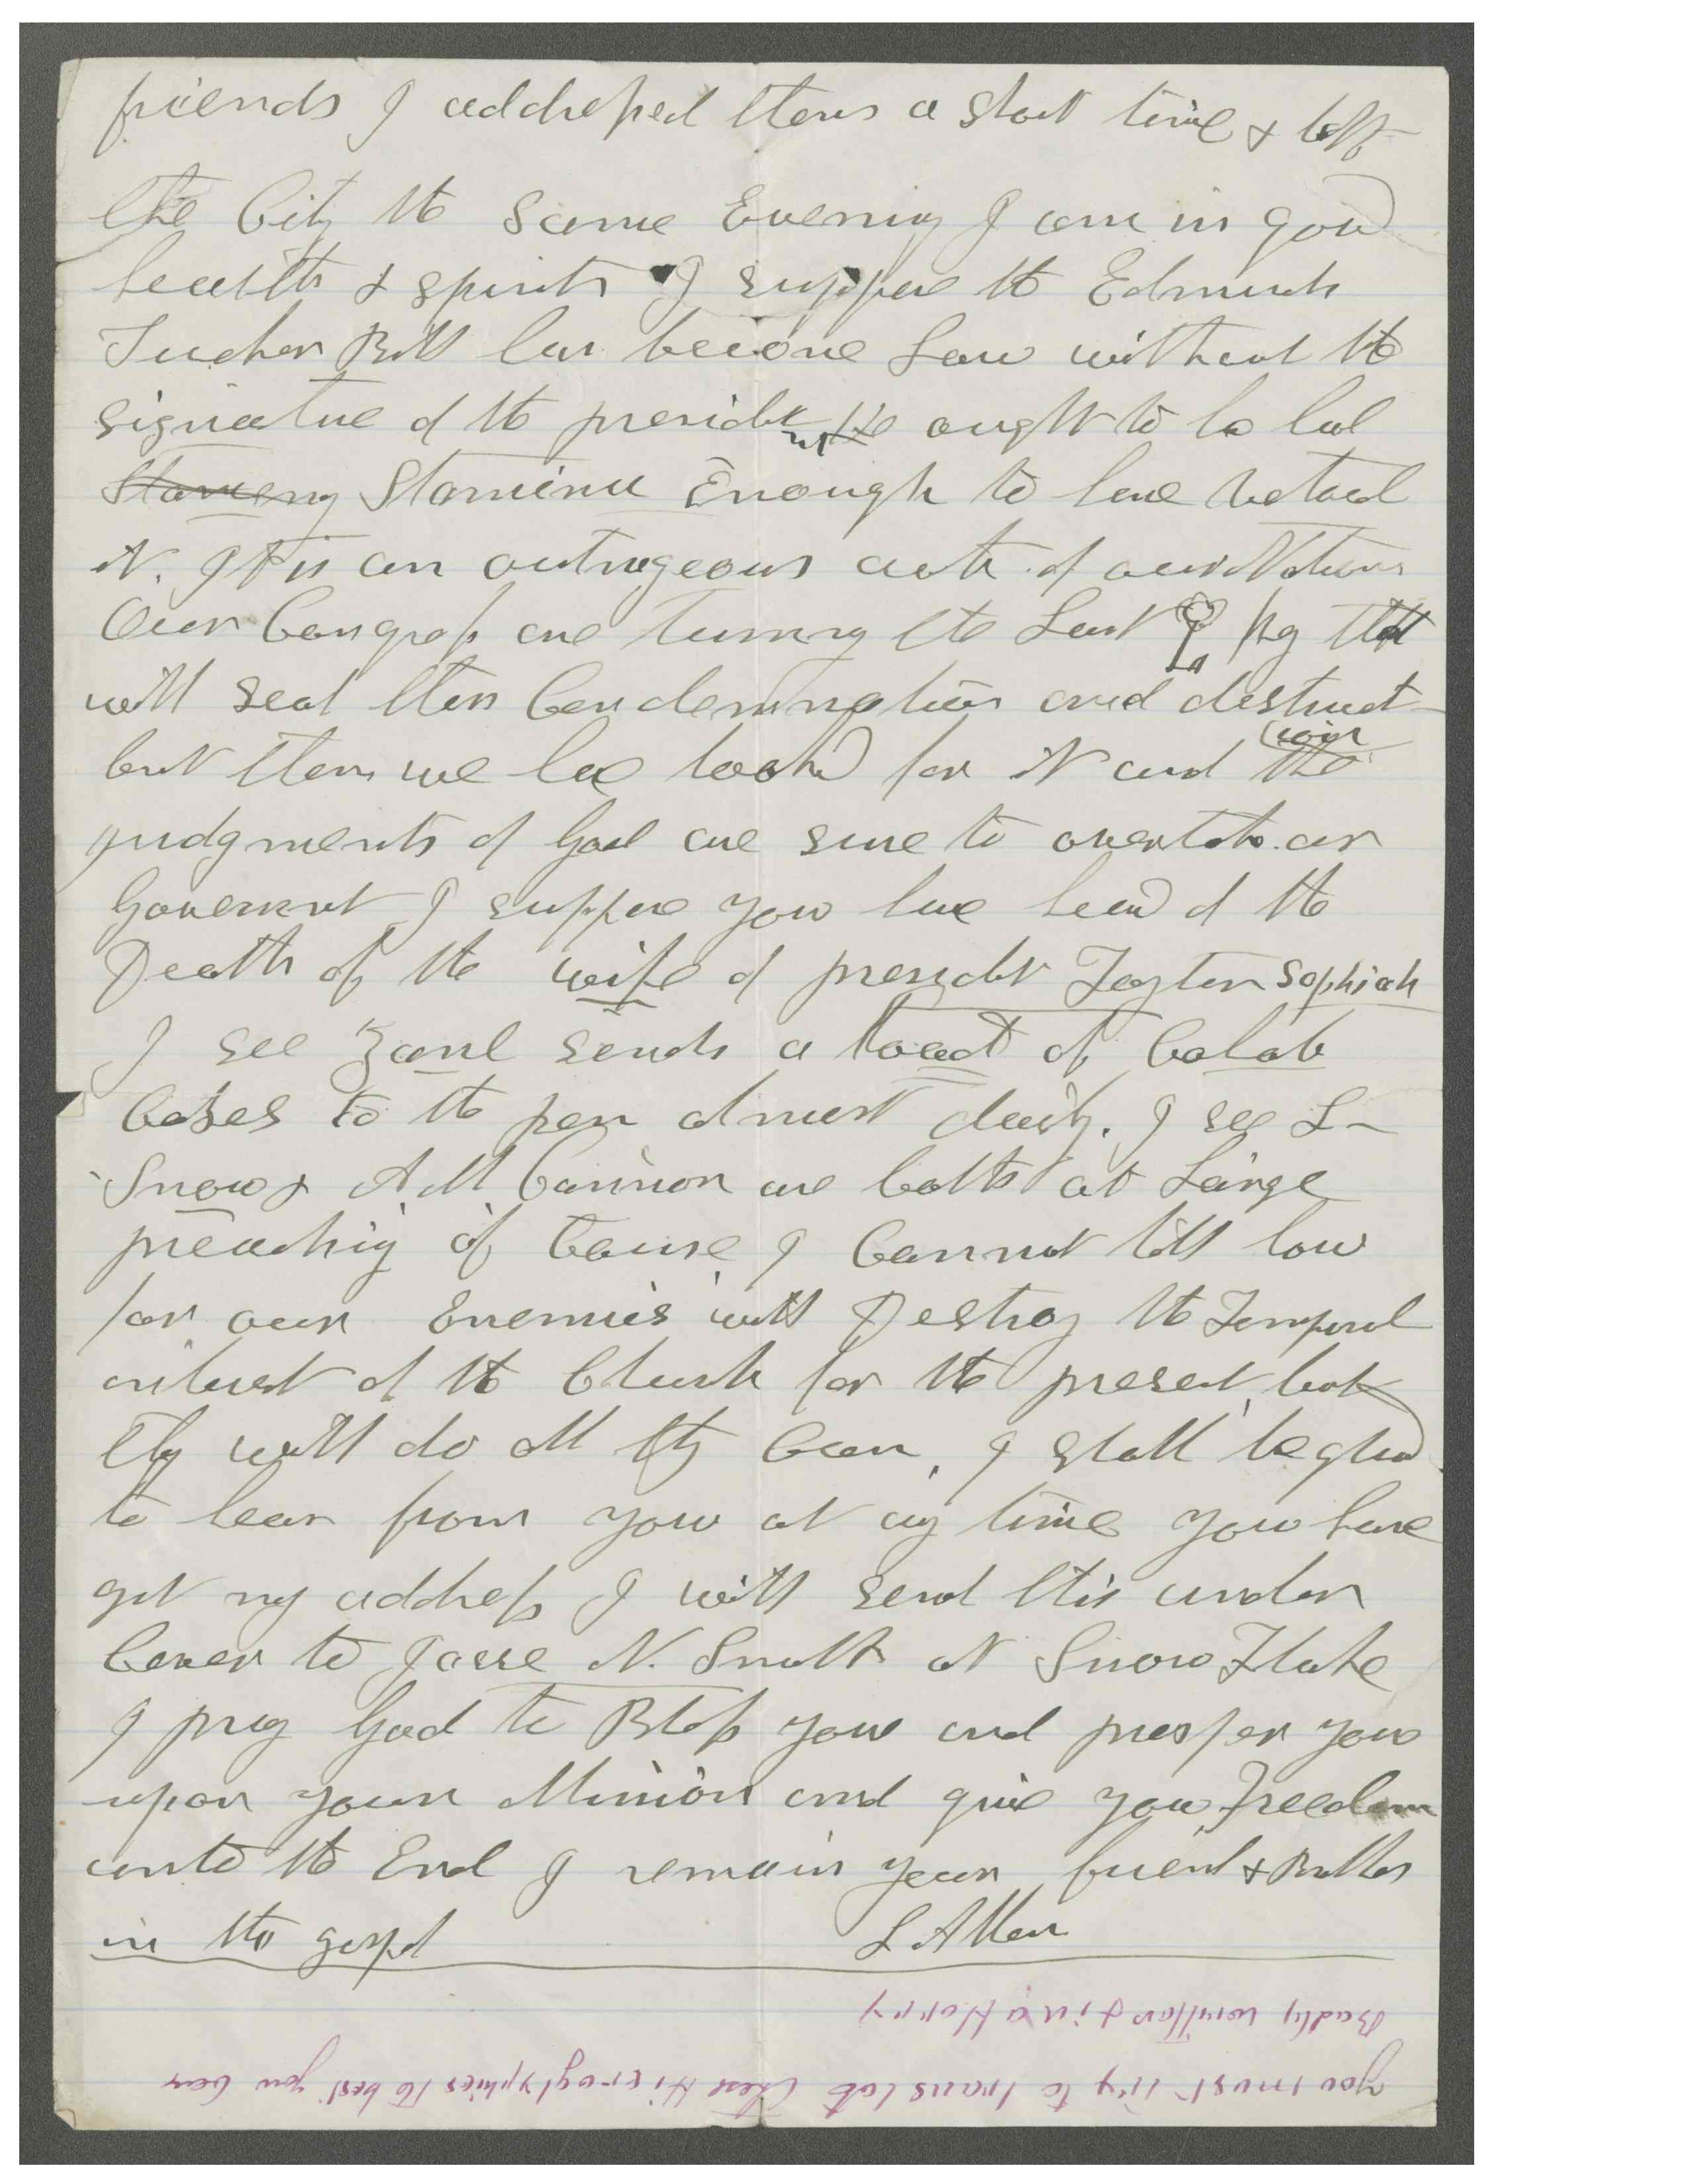 friends I addressed them a short time & left
the City the same Evening I am in good
health & spirits I suppose the Edmunds
Tucker Bill has become Law without the
signature of the president He ought to ha had
Stameny Stamina Enough to have vetoed
it. It is an outrageous act of our Nation
Our Congress are turning the Last Key that
will seal their Condemnation and destruct
ion
but then we have looked for it and the
judgments of God are sure to overtake our
Goverment I suppose you have heard of the
Death of the wife of president Taylor Sophiah
I see Zane sends a toad of Cohab
Cases to the pen almost daily. I see L
Snow & A M Cannon are both at Large
preaching of Course I Cannot tell how
far our Enemies will Destroy the Temporal
intrest of the Church for the present, but
they will do all they Can, I shall be glad
to hear from you at any time you have
got my address I will send this under
Cover to Jesse N. Smith at Snow Flake
I pray God to Bless you and prosper you
upon your Mission and give you Freedom
unto the End I remain your friend & Brother
in the gospel L Allen
you must try to translate these Hieroglyphics the best you can
Badly written & in a Horry